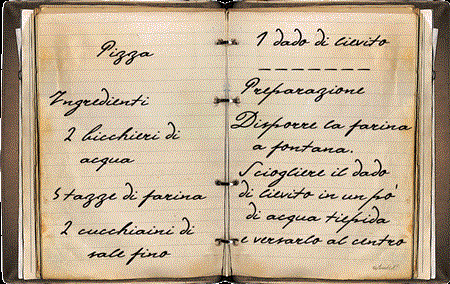 Pizza
Ingredienti
2 bicchieri di
acqua
5 tazze di farina
2 cucchiaini di
sale fino
1 dado di lievito
_ _ _ _ _ _ _ _
Preparazione
Disporre la farina
a fontana.
Sciogliere il dado
di lievito in un pò
di acqua tiepida
e versarlo al centro